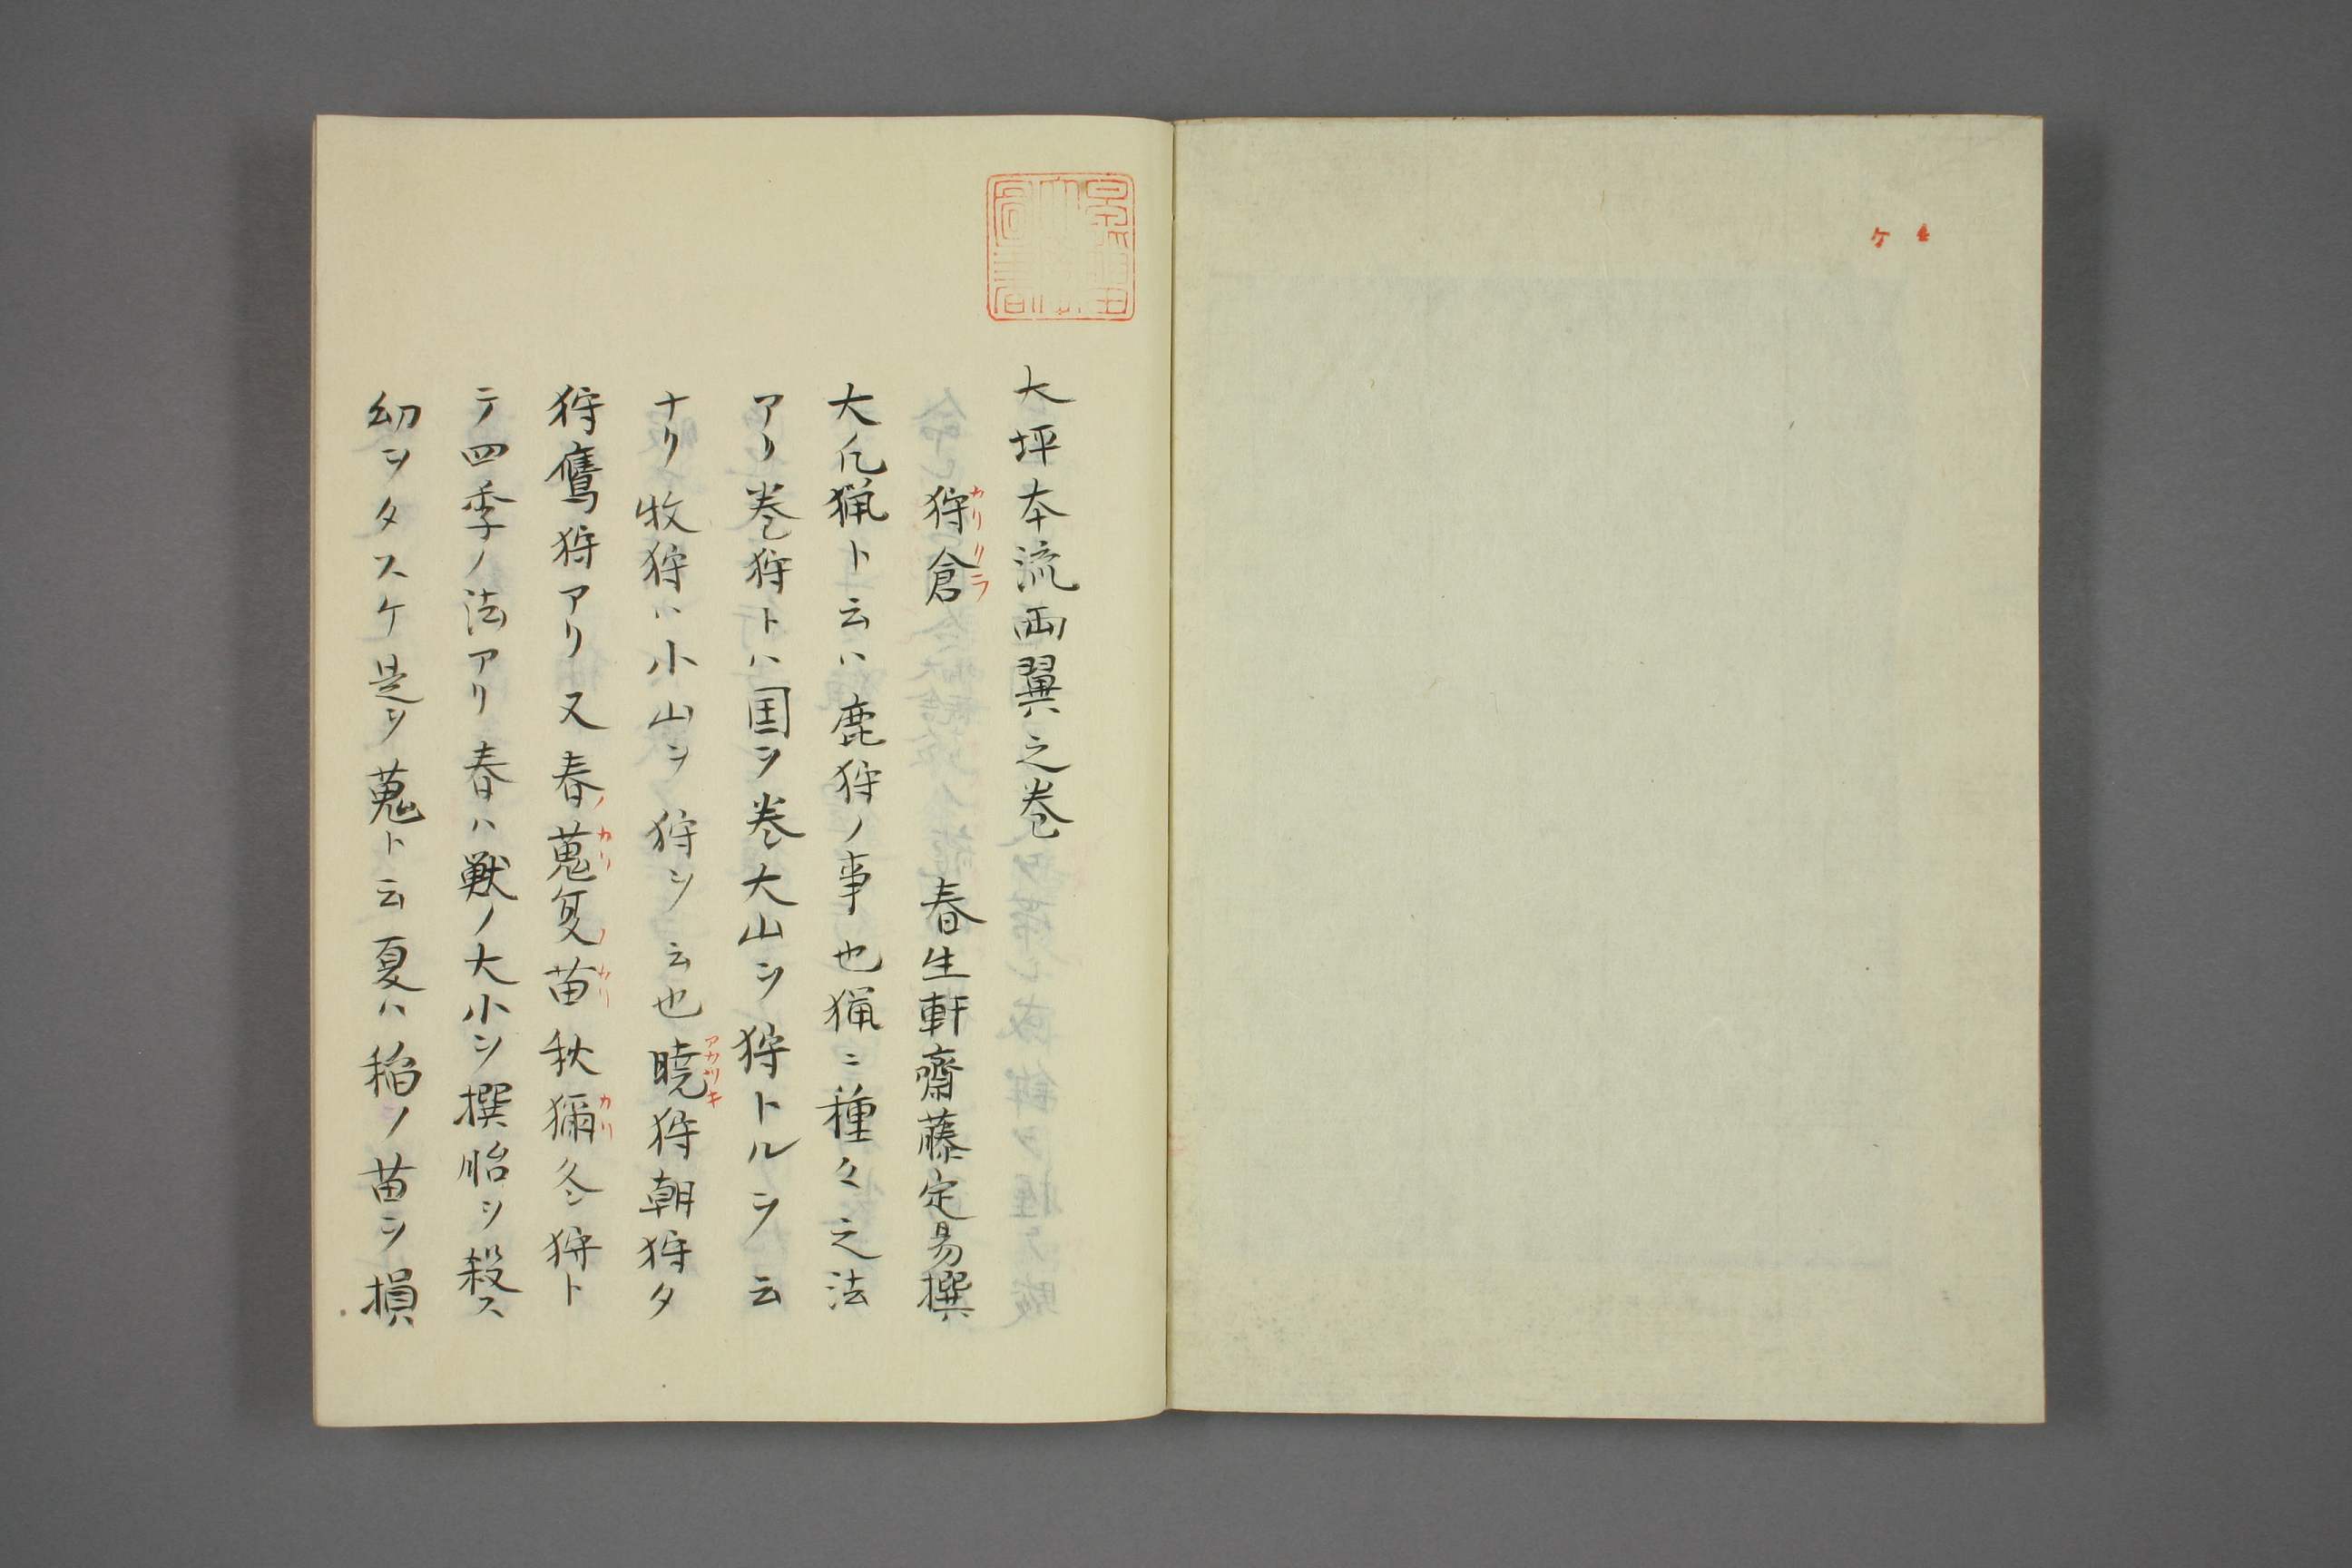 大坪本流両翼之巻
狩倉　春生軒齋藤定易撰
大凡猟ト云ハ鹿狩ノ事也猟ニ種々之法
アリ巻狩トハ国ヲ巻大山ヲ狩トルヲ云
ナリ牧狩ハ小山ヲ狩ヲ云也暁狩朝狩夕
狩鷹狩アリ又春ノ蒐夏ノ苗秋獮冬狩ト
テ四季ノ法アリ春ハ獣ノ大小ヲ撰胎ヲ殺ス
幼ヲタスケ是ヲ蒐ト云夏ハ稲ノ苗ヲ損